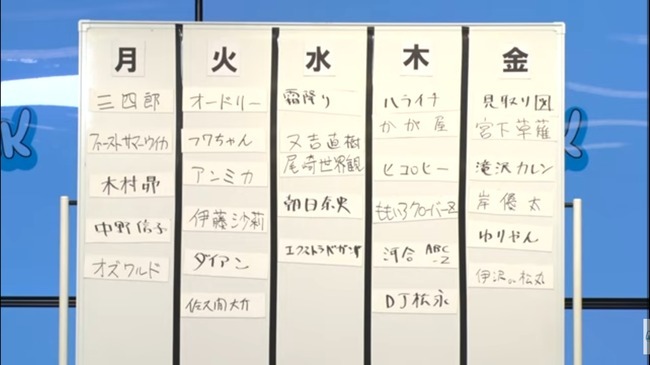 月
三四郎
ファーストサマーウイカ
木村昴
中野信子
オズワルド
火
オードリー
フワちゃん
アンミカ
伊藤沙莉
ダイアン
佐久間大介
水
霜降り
又吉直樹
尾崎世界観
朝日奈央
エクストラバガンザ
木
ハライチ
かが屋
ヒコロヒー
ももいろクローバーZ
河合 ABC
-Z
DJ松永
金
見取り図
宮下草薙
滝沢カレン
岸優太
ゆりやん
伊沢の松丸